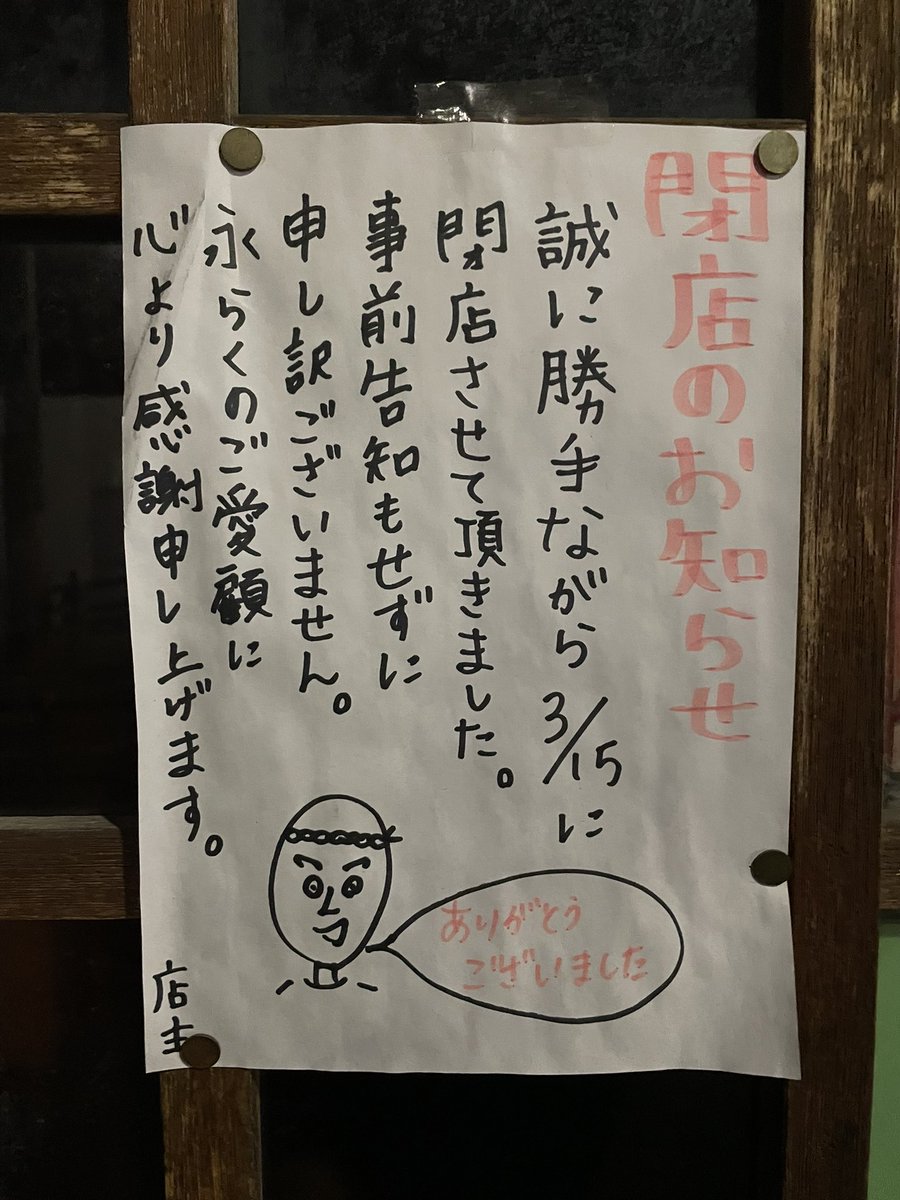 閉店のお知らせ
誠に勝手ながら3/15に
閉店させて頂きました。
事前告知もせずに
申し訳ございません。
永らくのご愛顧に
心より感謝申し上げます。
店主
ありがとう
ございました